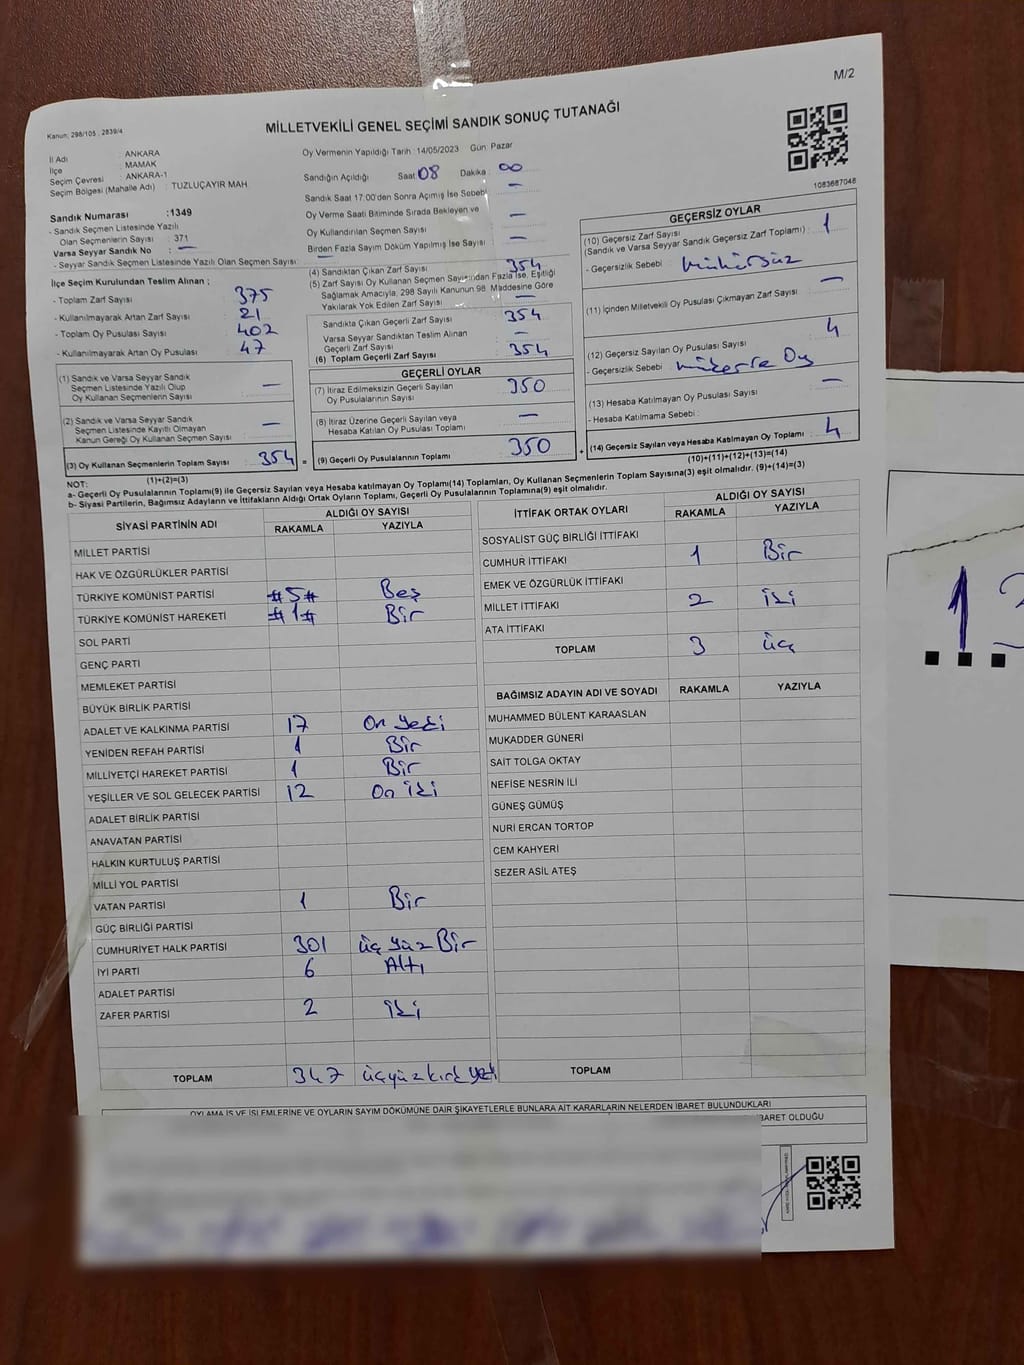 M/2
Kanun: 298/105 , 2839/4
MİLLETVEKİLİ GENEL SEÇİMİ SANDIK SONUÇ TUTANAĞI
1083687048
İl Adı : ANKARA
İlçe : MAMAK
Seçim Çevresi : ANKARA-1
Seçim Bölgesi (Mahalle Adı) : TUZLUÇAYIR MAH.
Sandık Numarası :1349
- Sandık Seçmen Listesinde Yazılı
Olan Seçmenlerin Sayısı : 371
Varsa Seyyar Sandık No : —
- Seyyar Sandık Seçmen Listesinde Yazılı Olan Seçmen Sayısı : —
İlçe Seçim Kurulundan Teslim Alınan ;
- Toplam Zarf Sayısı 375
- Kullanılmayarak Artan Zarf Sayısı 21
- Toplam Oy Pusulası Sayısı 402
- Kullanılmayarak Artan Oy Pusulası 47
(1) Sandık ve Varsa Seyyar Sandık
Seçmen Listesinde Yazılı Olup
Oy Kullanan Seçmenlerin Sayısı —
(2) Sandık ve Varsa Seyyar Sandık
Seçmen Listesinde Kayıtlı Olmayan
Kanun Gereği Oy Kullanan Seçmen Sayısı —
(3) Oy Kullanan Seçmenlerin Toplam Sayısı 354
(1)+(2)=(3)
Oy Vermenin Yapıldığı Tarih : 14/05/2023 Gün: Pazar
Sandığın Açıldığı Saat 08 Dakika : 00
Sandık Saat 17:00'den Sonra Açımış İse Sebebi —
Oy Verme Saati Bitiminde Sırada Bekleyen ve
Oy Kullandırılan Seçmen Sayısı —
Birden Fazla Sayım Döküm Yapılmış İse Sayısı —
(4) Sandıktan Çıkan Zarf Sayısı 354
(5) Zarf Sayısı Oy Kullanan Seçmen Sayısından Fazla İse, Eşitliği
Sağlamak Amacıyla, 298 Sayılı Kanunun 98. Maddesine Göre
Yakılarak Yok Edilen Zarf Sayısı —
Sandıkta Çıkan Geçerli Zarf Sayısı 354
Varsa Seyyar Sandıktan Teslim Alınan
Geçerli Zarf Sayısı —
(6) Toplam Geçerli Zarf Sayısı 354
GEÇERLİ OYLAR
(7) İtiraz Edilmeksizin Geçerli Sayılan
Oy Pusulalarının Sayısı 350
(8) İtiraz Üzerine Geçerli Sayılan veya
Hesaba Katılan Oy Pusulası Toplamı —
= (9) Geçerli Oy Pusulalarının Toplamı 350
GEÇERSİZ OYLAR
(10) Geçersiz Zarf Sayısı
(Sandık ve Varsa Seyyar Sandık Geçersiz Zarf Toplamı) : 1
- Geçersizlik Sebebi : Mühürsüz
(11) İçinden Milletvekili Oy Pusulası Çıkmayan Zarf Sayısı —
(12) Geçersiz Sayılan Oy Pusulası Sayısı 4
- Geçersizlik Sebebi : Oy
(13) Hesaba Katılmayan Oy Pusulası Sayısı —
- Hesaba Katılmama Sebebi :
+ (14) Geçersiz Sayılan veya Hesaba Katılmayan Oy Toplamı 4
(10)+(11)+(12)+(13)=(14)
NOT:
a- Geçerli Oy Pusulalarının Toplamı(9) ile Geçersiz Sayılan veya Hesaba katılmayan Oy Toplamı(14) Toplamları, Oy Kullanan Seçmenlerin Toplam Sayısına(3) eşit olmalıdır. (9)+(14)=(3)
b- Siyasi Partilerin, Bağımsız Adayların ve İttifakların Aldığı Ortak Oyların Toplamı, Geçerli Oy Pusulalarının Toplamına(9) eşit olmalıdır.
SİYASİ PARTİNİN ADI ALDIĞI OY SAYISI
RAKAMLA YAZIYLA
MİLLET PARTİSİ
HAK VE ÖZGÜRLÜKLER PARTİSİ
TÜRKİYE KOMÜNİST PARTİSİ #5# Beş
TÜRKİYE KOMÜNİST HAREKETİ #1# Bir
SOL PARTİ
GENÇ PARTİ
MEMLEKET PARTİSİ
BÜYÜK BİRLİK PARTİSİ
ADALET VE KALKINMA PARTİSİ 17 On Yedi
YENİDEN REFAH PARTİSİ 1 Bir
MİLLİYETÇİ HAREKET PARTİSİ 1 Bir
YEŞİLLER VE SOL GELECEK PARTİSİ 12 On iki
ADALET BİRLİK PARTİSİ
ANAVATAN PARTİSİ
HALKIN KURTULUŞ PARTİSİ
MİLLİ YOL PARTİSİ
VATAN PARTİSİ 1 Bir
GÜÇ BİRLİĞİ PARTİSİ
CUMHURİYET HALK PARTİSİ 301 üç yüz Bir
İYİ PARTİ 6 Altı
ADALET PARTİSİ
ZAFER PARTİSİ 2 iki
TOPLAM 347 üçyüz kırk yedi
İTTİFAK ORTAK OYLARI ALDIĞI OY SAYISI
RAKAMLA YAZIYLA
SOSYALİST GÜÇ BİRLİĞİ İTTİFAKI
CUMHUR İTTİFAKI 1 Bir
EMEK VE ÖZGÜRLÜK İTTİFAKI
MİLLET İTTİFAKI 2 iki
ATA İTTİFAKI
TOPLAM 3 üç
BAĞIMSIZ ADAYIN ADI VE SOYADI RAKAMLA YAZIYLA
MUHAMMED BÜLENT KARAASLAN
MUKADDER GÜNERİ
SAİT TOLGA OKTAY
NEFİSE NESRİN İLİ
GÜNEŞ GÜMÜŞ
NURİ ERCAN TORTOP
CEM KAHYERİ
SEZER ASİL ATEŞ
TOPLAM
OYLAMA İŞ VE İŞLEMLERİNE VE OYLARIN SAYIM DÖKÜMÜNE DAİR ŞİKAYETLERLE BUNLARA AİT KARARLARIN NELERDEN İBARET BULUNDUKLARI
İBARET OLDUĞU
1